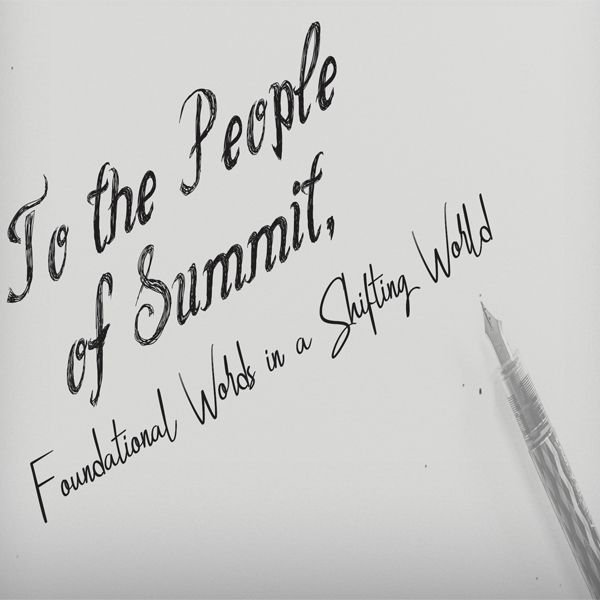 To the People
of Summit,
Foundational Words in a Shifting World